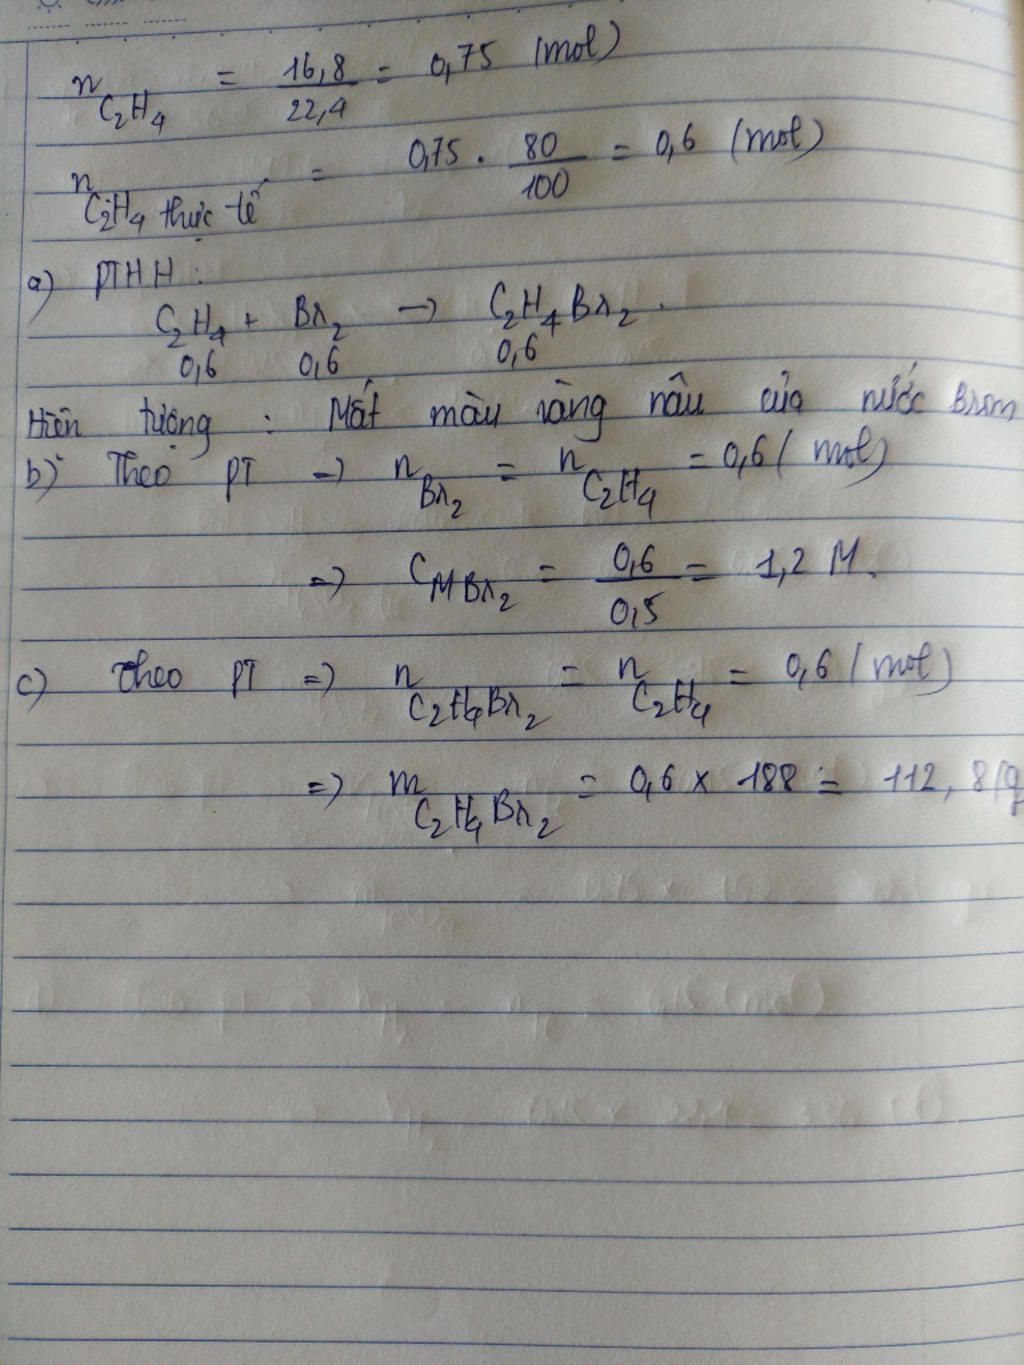 n C₂H₄ = 16,8/22,4 = 0,75 (mol)
n C₂H₄ thực tế = 0,75 . 80/100 = 0,6 (mol)
a) PTHH :
C₂H₄ + Br₂ → C₂H₄Br₂ .
0,6 0,6 0,6
Hiện tượng : Mất màu vàng nâu của nước Brom
b) Theo PT => n Br₂ = n C₂H₄ = 0,6 ( mol)
=> C M Br₂ = 0,6/0,5 = 1,2 M.
c) Theo PT => n C₂H₄Br₂ = n C₂H₄ = 0,6 (mol)
=> m C₂H₄Br₂ = 0,6 x 188 = 112,8 (g